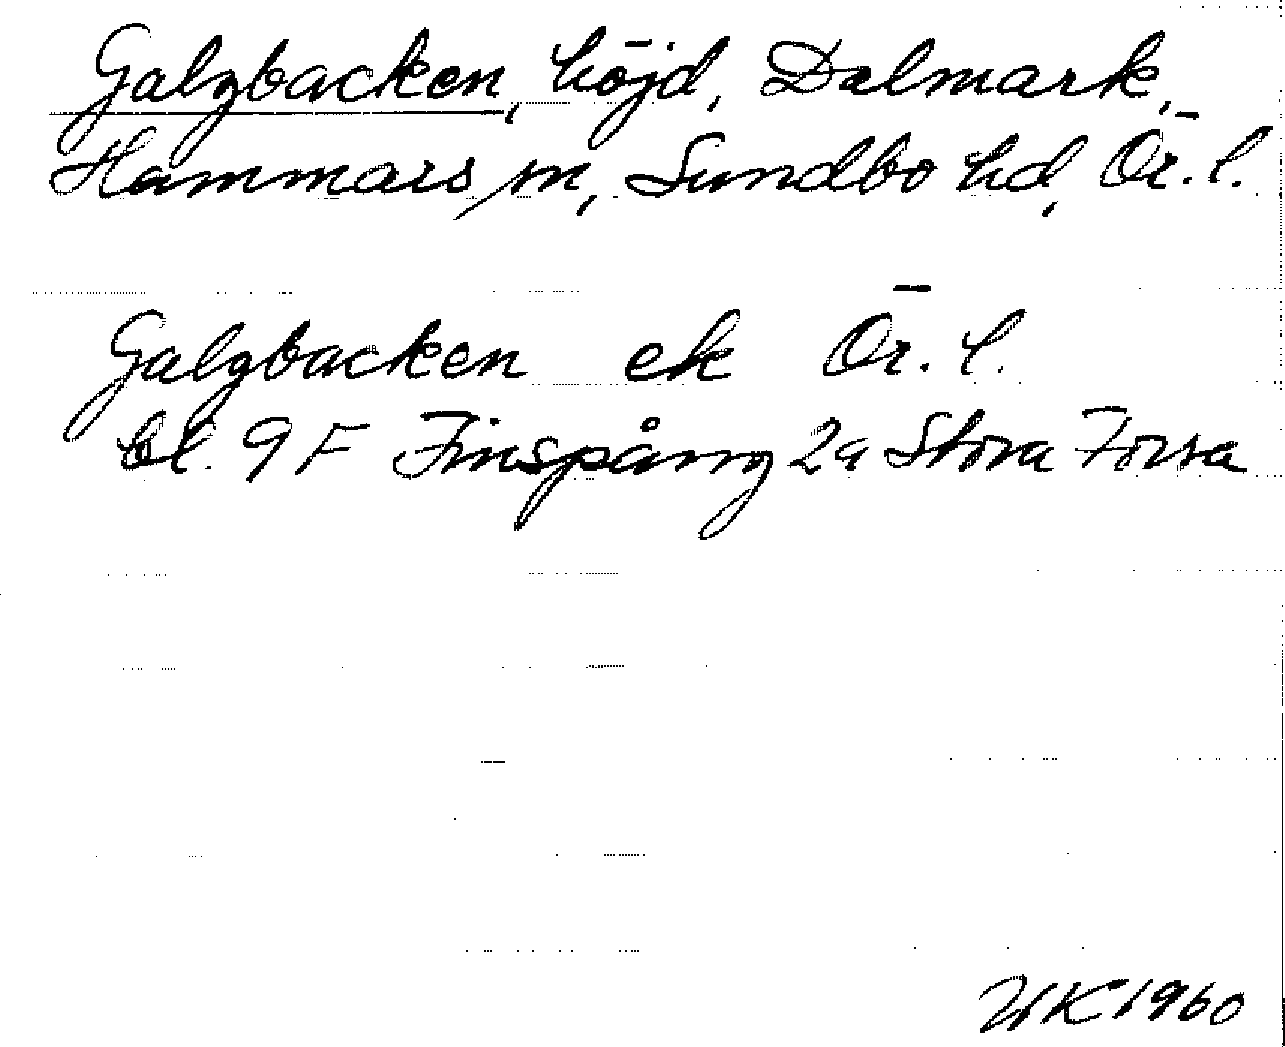 Galgbacken, höjd, Dalmark,
Hammars sn, Sundbo hd, Ör. l.
Galgbacken ek Ör. l.
bl. 9 F Finspång 2a Stora Forsa
UK 1960